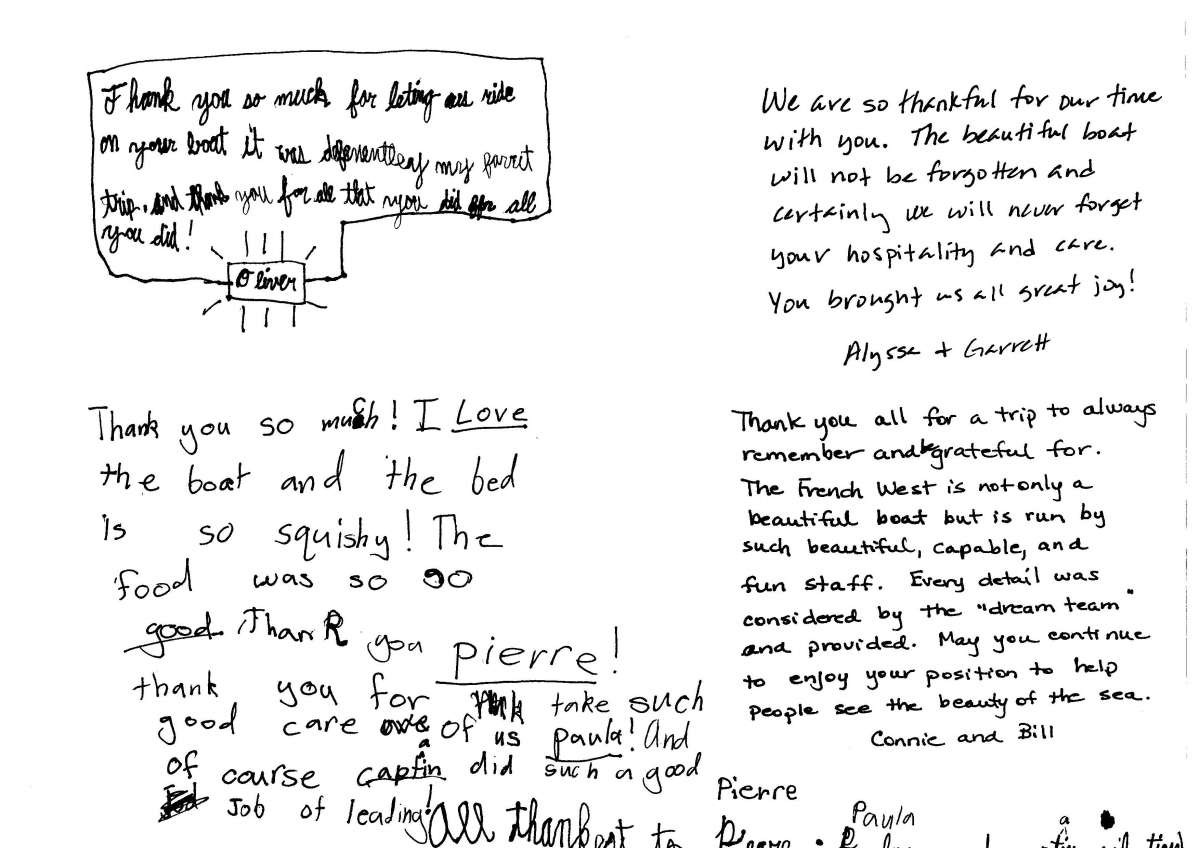 Thank you so much for leting us ride
on your boat it was defenentley my favrit
trip. and thank you for all that you did for all
you did!
Oliver
We are so thankful for our time
with you. The beautiful boat
will not be forgotten and
certainly we will never forget
your hospitality and care.
You brought us all great joy!
Alyssa + Garrett
Thank you so much! I Love
the boat and the bed
is so squishy! The
food was so go
good Thank you pierre!
thank you for take such
good care of us paula! And
of course captain did such a good
Job of leading!
Thank you all for a trip to always
remember and be grateful for.
The French West is not only a
beautiful boat but is run by
such beautiful, capable, and
fun staff. Every detail was
considered by the "dream team"
and provided. May you continue
to enjoy your position to help
people see the beauty of the sea.
Connie and Bill
Pierre
Paula
a
All to